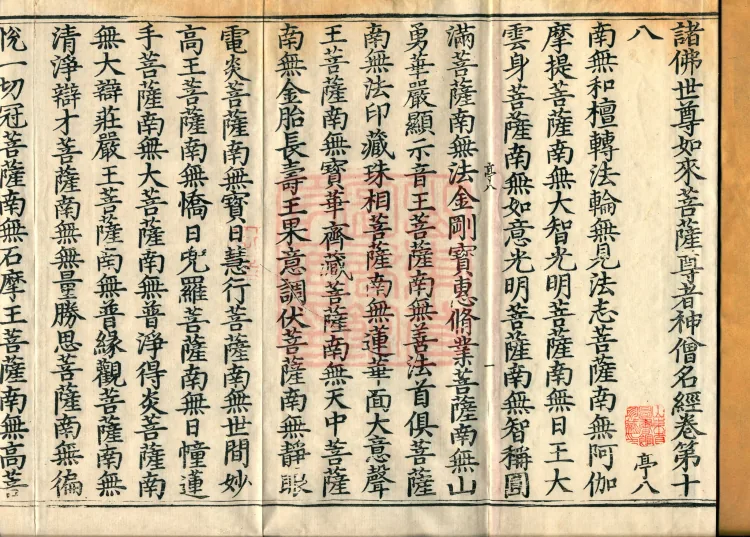 諸佛世尊如來菩薩尊者神僧名經卷第十
八
亭八
南無和檀轉法輪無見法志菩薩南無阿伽
摩提菩薩南無大智光明菩薩南無日王大
雲身菩薩南無如意光明菩薩南無智稱圓
亭八
一
滿菩薩南無法金剛寶惠脩業菩薩南無山
勇華嚴顯示音王菩薩南無善法首俱菩薩
南無法印藏珠相菩薩南無蓮華面大意聲
王菩薩南無寶華齊藏菩薩南無天中菩薩
南無金胎長壽王果意調伏菩薩南無靜眼
電炎菩薩南無寶日慧行菩薩南無世間妙
高王菩薩南無憍日兜羅菩薩南無日幢蓮
手菩薩南無大菩薩南無普淨得炎菩薩南
無大辯莊嚴王菩薩南無普緣觀菩薩南無
清淨辯才菩薩南無無量勝思菩薩南無徧
悅一切冠菩薩南無石摩王菩薩南無高菩